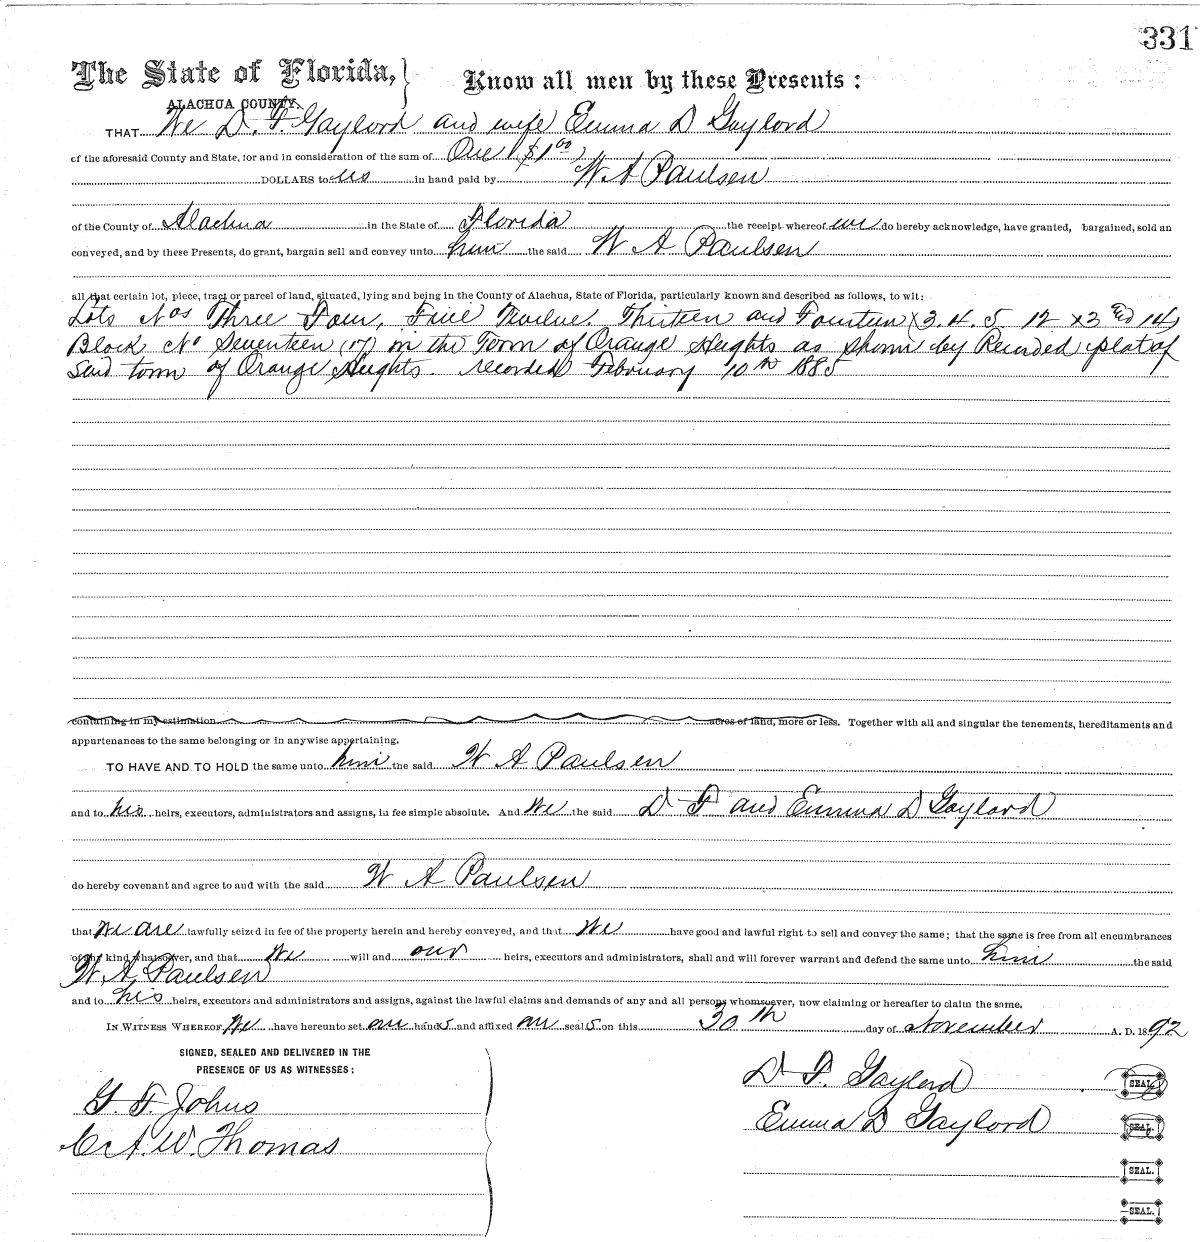 331
The State of Florida, } Know all men by these Presents :
ALACHUA COUNTY.
THAT We D. F. Gaylord and wife Emma D Gaylord
of the aforesaid County and State, for and in consideration of the sum of One ($1 00)
DOLLARS to us in hand paid by W A Paulsen
of the County of Alachua in the State of Florida the receipt whereof we do hereby acknowledge, have granted, bargained, sold an
conveyed, and by these Presents, do grant, bargain sell and convey unto him the said W A Paulsen
all that certain lot, piece, tract or parcel of land, situated, lying and being in the County of Alachua, State of Florida, particularly known and described as follows, to wit:
Lots Nos Three Four, Five Twelve. Thirteen and Fourteen (3. 4. 5 12 13 14)
Block No Seventeen (17) in the Town of Orange Heights as shown by Recorded plat of
said town of Orange Heights. recorded February 10th 1885
containing in my estimation acres of land, more or less. Together with all and singular the tenements, hereditaments and
appurtenances to the same belonging or in anywise appertaining.
TO HAVE AND TO HOLD the same unto him the said W A Paulsen
and to his heirs, executors, administrators and assigns, in fee simple absolute. And We the said D F and Emma D Gaylord
do hereby covenant and agree to and with the said W A Paulsen
that we are lawfully seized in fee of the property herein and hereby conveyed, and that We have good and lawful right to sell and convey the same; that the same is free from all encumbrances
of any kind whatsoever, and that We will and our heirs, executors and administrators, shall and will forever warrant and defend the same unto him the said
W A Paulsen
and to his heirs, executors and administrators and assigns, against the lawful claims and demands of any and all persons whomsoever, now claiming or hereafter to claim the same.
IN WITNESS WHEREOF We have hereunto set our hands and affixed our seals on this 30th day of November A. D. 1892
SIGNED, SEALED AND DELIVERED IN THE
PRESENCE OF US AS WITNESSES:
D F. Gaylord SEAL.
G. F. Johns
Emma D Gaylord SEAL.
A. W. Thomas
SEAL.
SEAL.